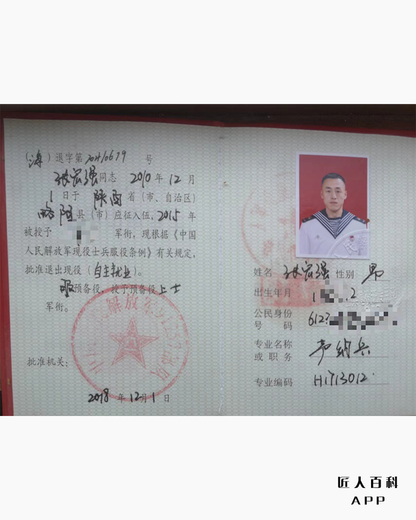 (海)退字第 号
张宏强同志 2010 年 12 月
1 日于 陕西 省(市、自治区)
略阳 县(市)应征入伍,2015 年
被授予 军衔,现根据《中国
人民解放军现役士兵服役条例》有关规定,
批准退出现役(自主就业)。
服预备役,授予预备役上士
军衔。
批准机关:
2018 年 12 月 1 日
姓名 张宏强 性别 男
出生年月
公民身份
号码
专业名称 声纳兵
或职务
专业编码
匠人百科
APP